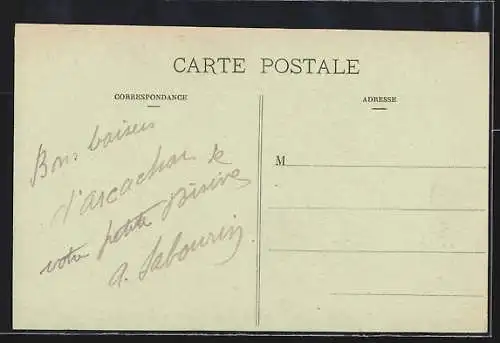 CARTE POSTALE
CORRESPONDANCE
ADRESSE
M
Bons baisers
d'arcachon de
votre petite
A. Labourin.